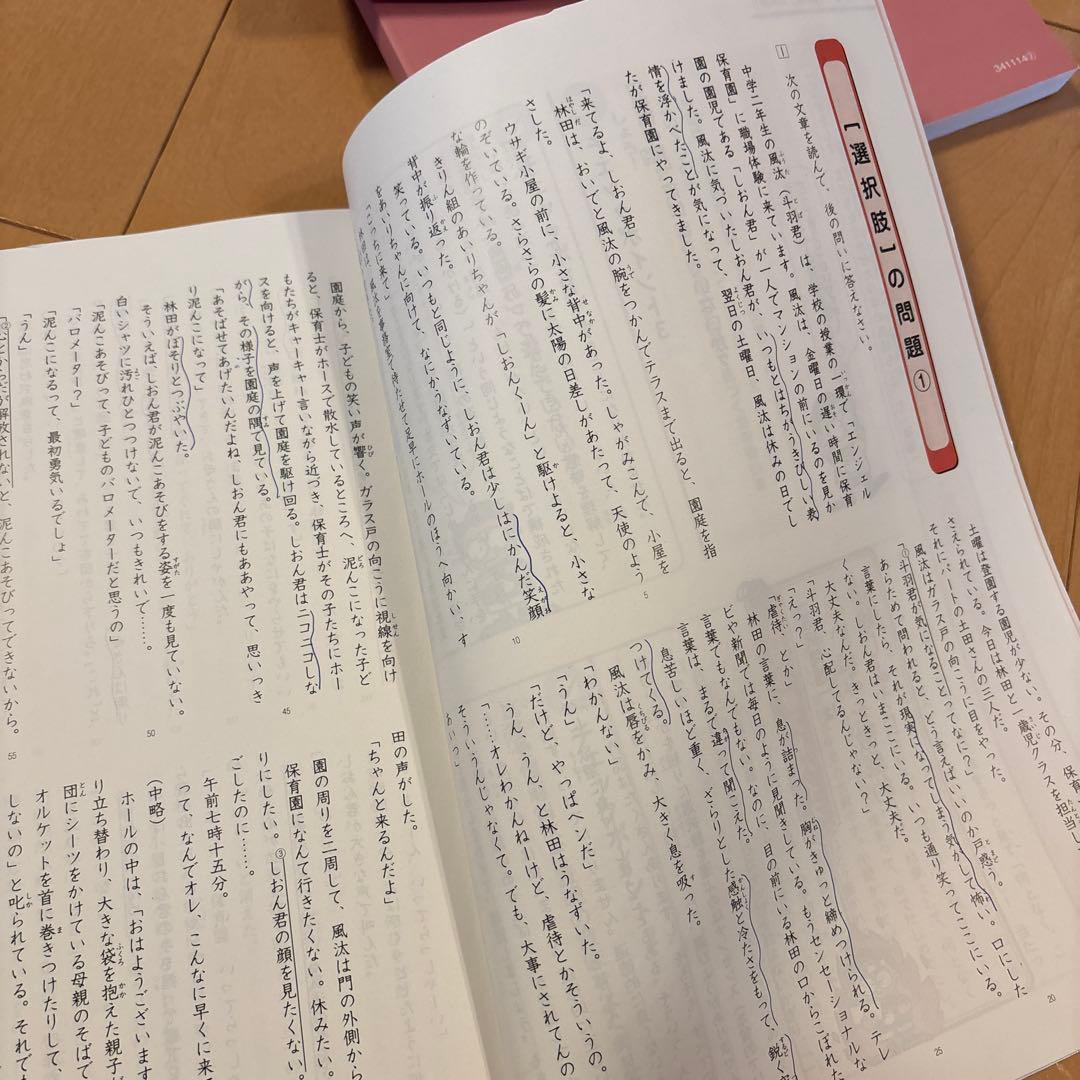 341114②
【選択肢】の問題①
1 次の文章を読んで、後の問いに答えなさい。
中学二年生の風汰（斗羽君）は、学校の授業の一環で「エンジェル
保育園」に職場体験に来ています。風汰は、金曜日の遅い時間に保育
園の園児である「しおん君」が一人でマンションの前にいるのを見か
けました。風汰に気づいたしおん君が、いつもとはちがうきびしい表
情を浮かべたことが気になって、翌日の土曜日、風汰は休みの日でし
たが保育園にやってきました。
「来てるよ、しおん君」
林田は、おいでと風汰の腕をつかんでテラスまで出ると、園庭を指
さした。
ウサギ小屋の前に、小さな背中があった。しゃがみこんで、小屋を
のぞいている。さらさらの髪に太陽の日差しがあたって、天使のよう
な輪を作っている。
きりん組のあいりちゃんが「しおんくーん」と駆けよると、小さな
背中が振り返った。
笑っている。いつもと同じように、しおん君は少しはにかんだ笑顔
をあいりちゃんに向けて、なにかうなずいている。
「こっちに来て」
5
10
土曜は登園する園児が少ない。その分、保育
さえられている。今日は林田と一歳児クラスを担当し
それにパートの土田さんの三人だ。
風汰はガラス戸の向こうに目をやった。
「①斗羽君が気になることってなに？」
あらためて問われると、どう言えばいいのか戸惑う。口にした
言葉にしたら、それが現実になってしまう気がして怖い。
くない。しおん君はいまここにいる。いつも通り笑ってここにいる。
大丈夫なんだ。きっときっと、大丈夫だ。
「斗羽君、心配してるんじゃない？」
「えっ？」
「虐待、とか」
林田の言葉に、息が詰まった。胸がきゅっと締めつけられる。テレ
ビや新聞では毎日のように見聞きしている。もうセンセーショナルな
言葉でもなんでもない。なのに、目の前にいる林田の口からこぼれた
言葉は、まるで違って聞こえた。
息苦しいほど重く、ざらりとした感触と冷たさをもって、鋭く
つけてくる。
風汰は唇をかみ、大きく息を吸った。
「わかんない」
「うん」
「だけど、やっぱヘンだ」
うん、うん、と林田はうなずいた。
「……オレわかんねーけど、虐待とかそういうの。
そういうんじゃなくて。でも、大事にされてんの
20
25
園庭から、子どもの笑い声が響く。ガラス戸の向こうに視線を向け
ると、保育士がホースで散水しているところへ、泥んこになった子ど
もたちがキャーキャー言いながら近づき、保育士がその子たちにホー
スを向けると、声を上げて園庭を駆け回る。しおん君はニコニコしな
がら、その様子を園庭の隅で見ている。
「あそばせてあげたいんだよね、しおん君にもああやって、思いっき
り泥んこになって」
林田がぼそりとつぶやいた。
そういえば、しおん君が泥んこあそびをする姿を一度も見ていない。
白いシャツに汚れひとつつけないで、いつもきれいで……。
「泥んこあそびって、子どものバロメーターだと思うの」
「バロメーター？」
「泥んこになるって、最初勇気いるでしょ」
「うん」
45
50
55
田の声がした。
「ちゃんと来るんだよ」
園の周りを二周して、風汰は門の外側から
保育園になんて行きたくない。休みたい。
りにしたい。③しおん君の顔を見たくない。
ごしたのに……。
午前七時十五分。
って、なんでオレ、こんなに早くに来
（中略）
ホールの中は、「おはようございます
り立ち替わり、大きな袋を抱えた親子が
団にシーツをかけている母親のそばで
オルケットを首に巻きつけたりして、
しないの」と叱られている。それでも